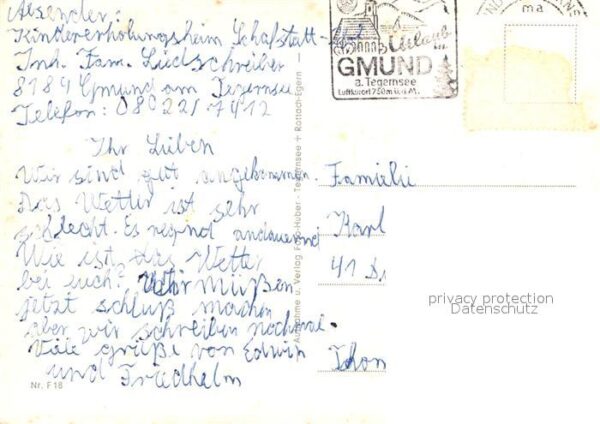 Absender:
Kindererholungsheim Schafstatt-
Inh. Fam. Liedschreiber
8184 Gmund am Tegernsee
Telefon: 08022/7412
Ihr Lieben
Wir sind gut angekommen.
Das Wetter ist sehr
schlecht. Es regnd andauernd
Wie ist das Wetter
bei euch? Wir müßen
jetzt schluß machen
aber wir schreiben nochmal.
Viele grüße von Edwin
und Friedhelm
Nr. F 18
Aufnahme u. Verlag Foto-Huber - Tegernsee + Rottach-Egern
Urlaub
in
GMUND
a. Tegernsee
Luftkurort 750m ü.d.M.
ma
Familie
Karl
41 D
Thon
privacy protection
Datenschutz